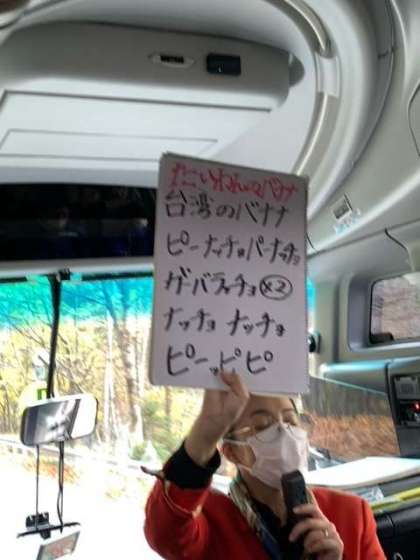 たいわんのバナナ
台湾のバナナ
ピーナッチョパーナッチョ
ガーバラッチョ×2
ナッチョ ナッチョ
ピーッピピ